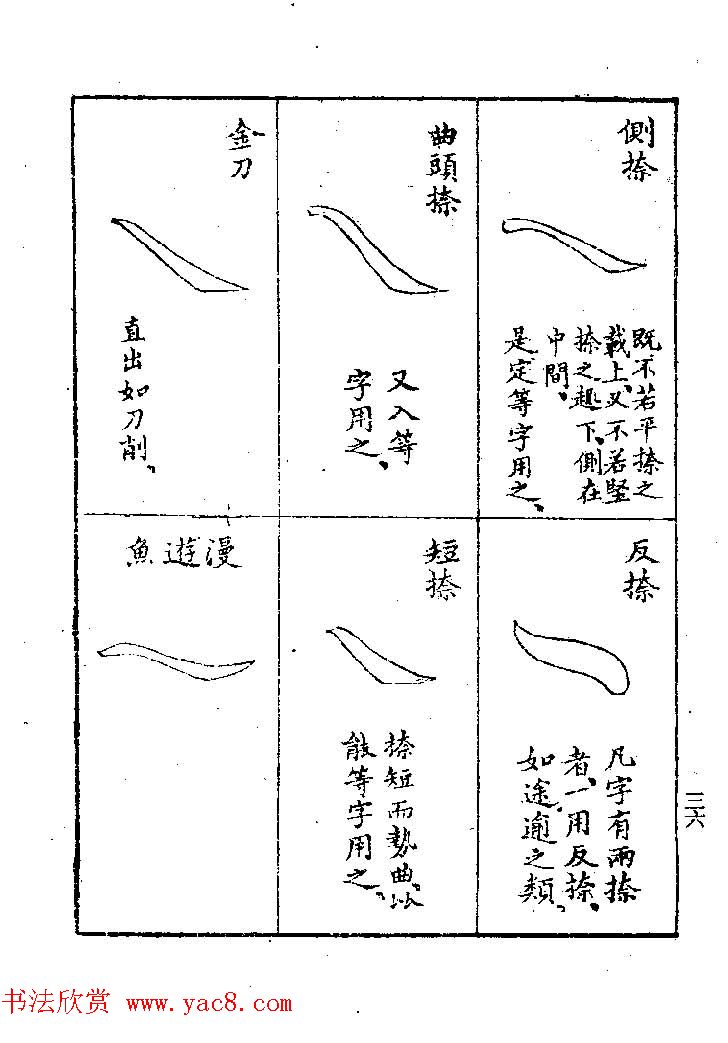 側捺
既不若平捺之
載上、又不若竪
捺之下、側在
中間、
是定等字用之、
曲頭捺
又入等
字用之、
金刀
直出如刀削、
反捺
凡字有兩捺
者、一用反捺、
如途之類、
短捺
捺短而勢曲、以
等字用之、
漫遊魚
三六
书法欣赏 www.yac8.com